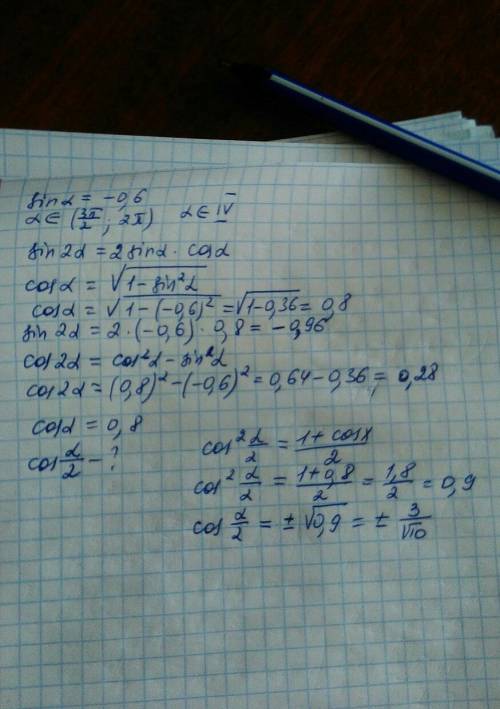 sin α = -0,6
α ∈ (3π/2; 2π) α ∈ IV
sin 2α = 2 sin α · cos α
cos α = √(1 - sin²α)
cos α = √(1 - (-0,6)²) = √(1-0,36) = 0,8
sin 2α = 2·(-0,6)·0,8 = -0,96
cos 2α = cos²α - sin²α
cos 2α = (0,8)² - (-0,6)² = 0,64 - 0,36 = 0,28
cos α = 0,8
cos α/2 - ?
cos² α/2 = (1 + cos x)/2
cos² α/2 = (1+0,8)/2 = 1,8/2 = 0,9
cos α/2 = ± √0,9 = ± 3/√10